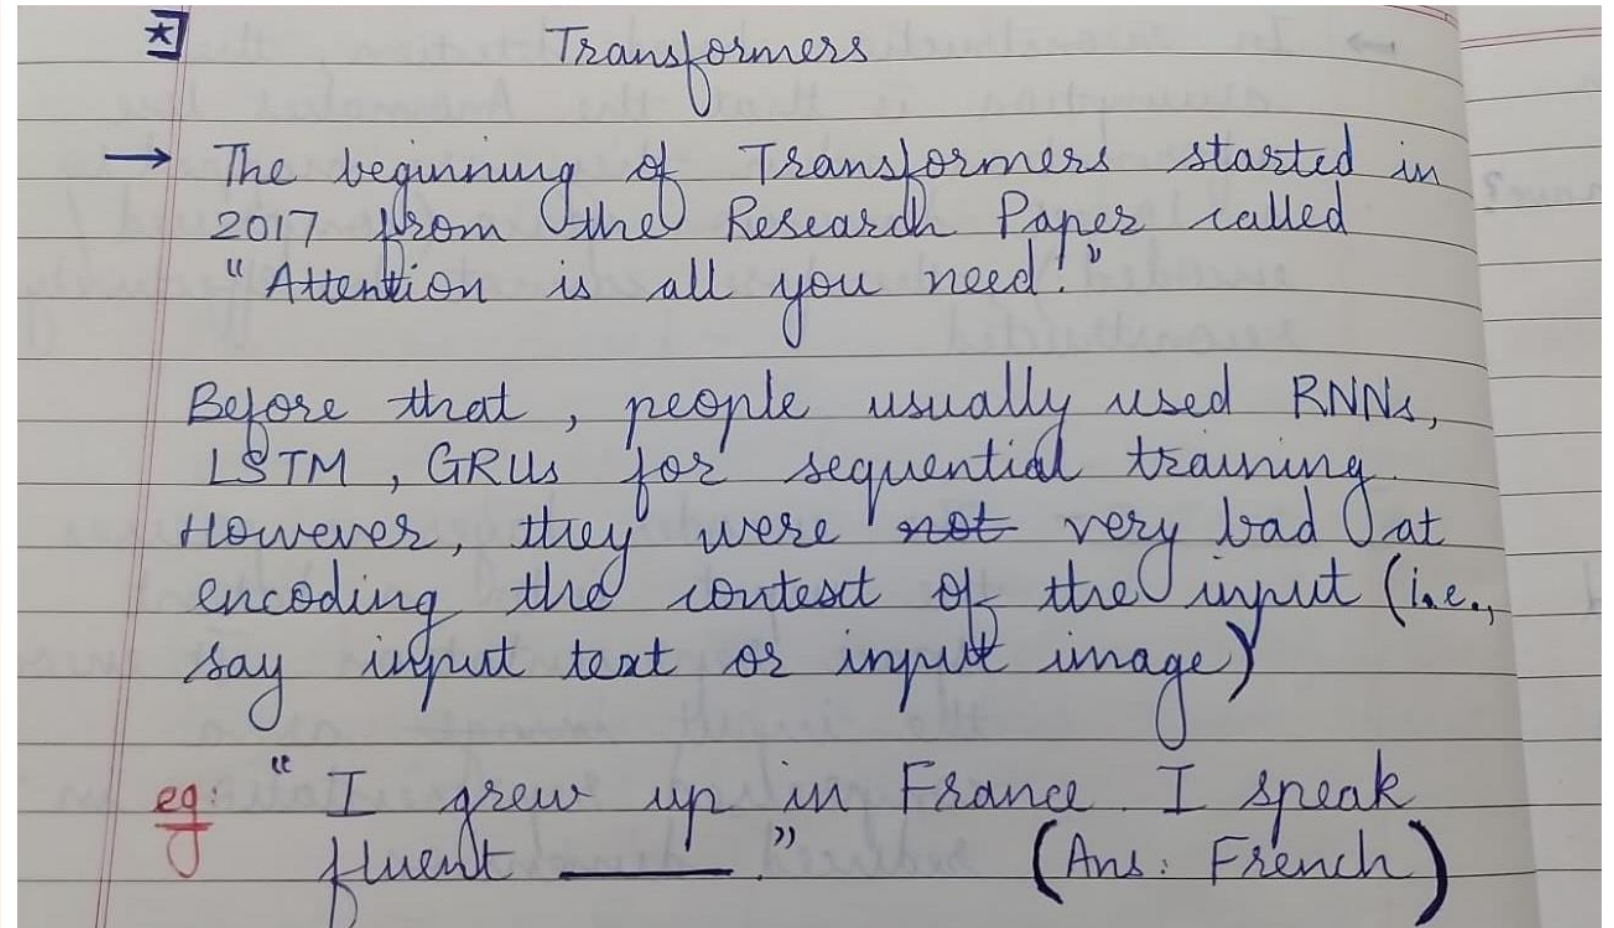 Transformers
→ The beginning of Transformers started in
2017 from the Research Paper called
“Attention is all you need!”
Before that, people usually used RNNs,
LSTM, GRUs for sequential training.
However, they were ~~not~~ very bad at
encoding the context of the input (i.e.,
say input text or input image)
eg: “I grew up in France. I speak
fluent ______.” (Ans: French)